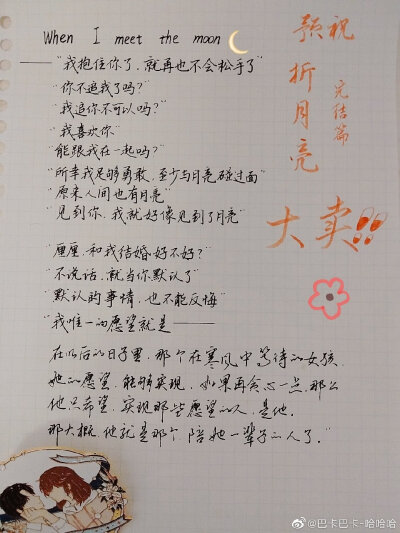 When I meet the moon
——"我抱住你了，就再也不会松手了"
"你不追我了吗？"
"我追你不可以吗？"
"我喜欢你"
"能跟我在一起吗？"
"所幸我足够勇敢，至少与月亮碰过面"
"原来人间也有月亮"
"见到你，我就好像见到了月亮"
"厘厘，和我结婚好不好？"
"不说话，就当你默认了"
"默认的事情，也不能反悔"
"我唯一的愿望就是——
在以后的日子里，那个在寒风中等待的女孩，
她的愿望，能够实现，如果再贪心一点，那么
他只希望，实现那些愿望的人，是他。
那大概，他就是那个陪她一辈子的人了。"
预祝
折月亮
完结篇
大卖!!
@巴卡巴卡-哈哈哈